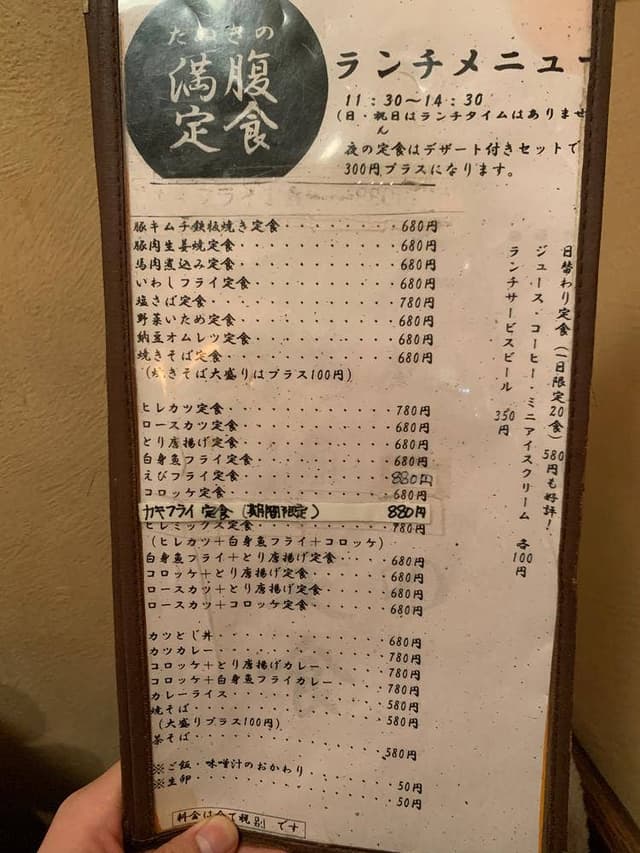 たぬきの
満腹
定食
ランチメニュー
11:30〜14:30
(日・祝日はランチタイムはありませ
ん
夜の定食はデザート付きセットで
300円プラスになります。
豚キムチ鉄板焼き定食・・・・・・・・680円
豚肉生姜焼定食・・・・・・・・・・・680円
馬肉煮込み定食・・・・・・・・・・・680円
いわしフライ定食・・・・・・・・・・680円
塩さば定食・・・・・・・・・・・・・780円
野菜いため定食・・・・・・・・・・・680円
納豆オムレツ定食・・・・・・・・・・680円
焼きそば定食・・・・・・・・・・・・680円
(焼きそば大盛りはプラス100円)
ヒレカツ定食・・・・・・・・・・・・780円
ロースカツ定食・・・・・・・・・・・680円
とり唐揚げ定食・・・・・・・・・・・680円
白身魚フライ定食・・・・・・・・・・680円
えびフライ定食・・・・・・・・・・・880円
コロッケ定食・・・・・・・・・・・・680円
カキフライ定食(期間限定) 880円
ヒレミックス定食・・・・・・・・・・780円
(ヒレカツ+白身魚フライ+コロッケ)
白身魚フライ+とり唐揚げ定食・・・・680円
コロッケ+とり唐揚げ定食・・・・・・680円
ロースカツ+とり唐揚げ定食・・・・・680円
ロースカツ+コロッケ定食・・・・・・680円
カツとじ丼・・・・・・・・・・・・・680円
カツカレー・・・・・・・・・・・・・780円
コロッケ+とり唐揚げカレー・・・・・780円
コロッケ+白身魚フライカレー・・・・780円
カレーライス・・・・・・・・・・・・580円
焼そば・・・・・・・・・・・・・・・580円
(大盛りプラス100円)
茶そば・・・・・・・・・・・・・・・580円
※ご飯・味噌汁のおかわり・・・・・・50円
※生卵・・・・・・・・・・・・・・・50円
料金は全て税別です
日替わり定食(一日限定20食)580円も好評!
ジュース・コーヒー・ミニアイスクリーム 各100円
ランチサービスビール 350円